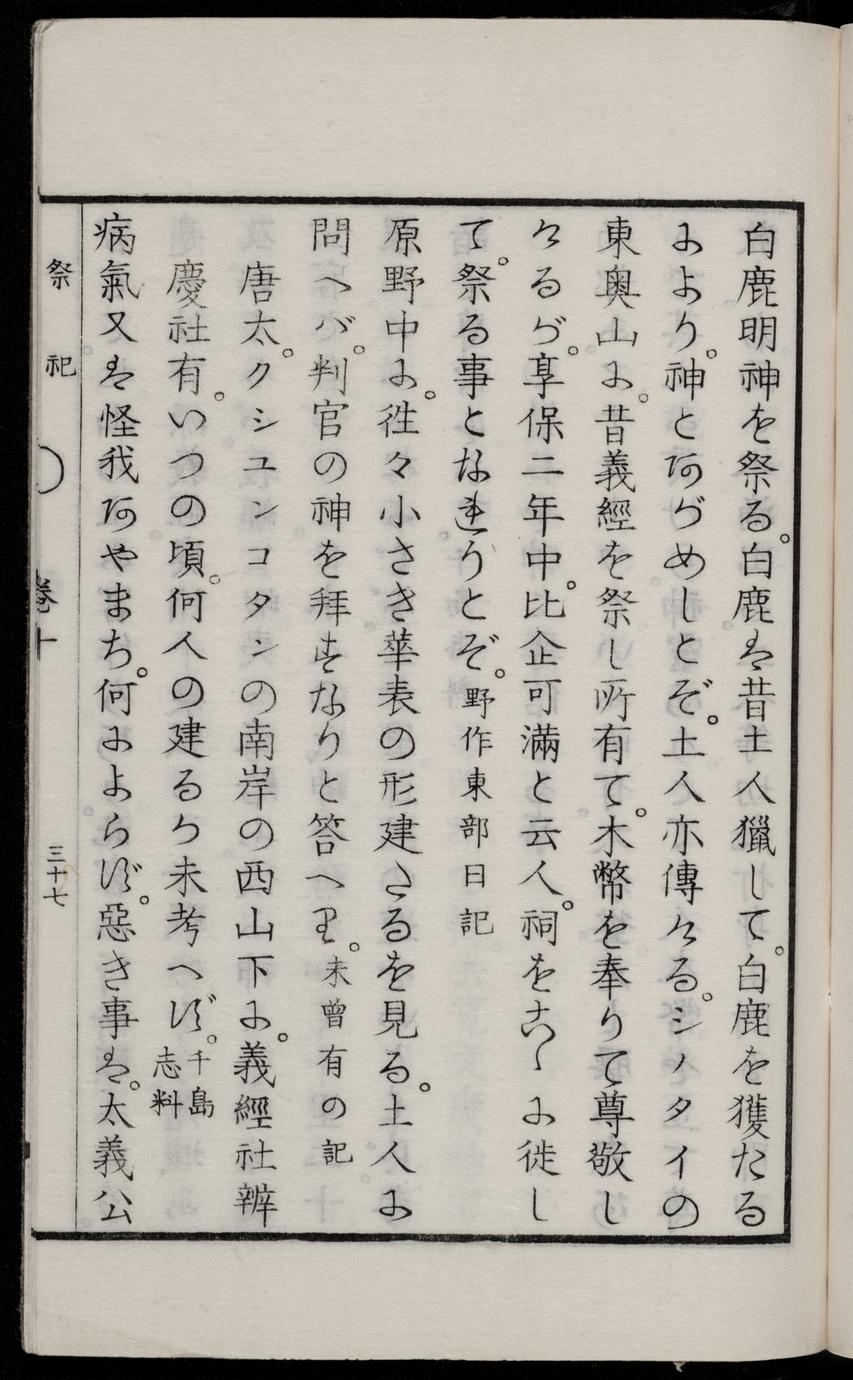 白鹿明神を祭る。白鹿は昔土人獵して。白鹿を獲たる
により。神とあがめしとぞ。土人亦傳ける。シノタイの
東奥山に。昔義經を祭し所有て。木幣を奉りて尊敬し
けるが。享保二年中。比企可滿と云人。祠をこゝに徙し
て。祭る事となれりとぞ。野作東部日記
原野中に。徃々小さき華表の形建たるを見る。土人に
問へバ。判官の神を拜するなりと答へり。未曾有の記
唐太。クシユンコタンの南岸の西山下に。義經社辨
慶社有。いつの頃。何人の建るか未考へず。千島
志料
病氣又は怪我あやまち。何によらず。惡き事は。太義公
祭祀
卷十
三十七